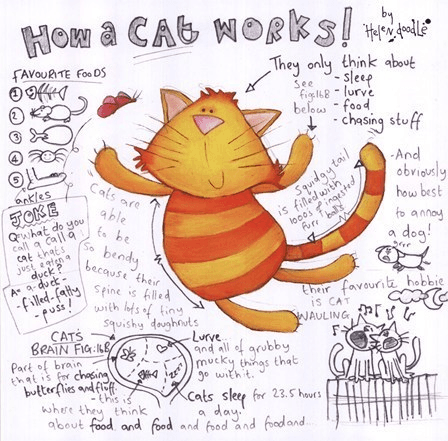 How a CAT WORKS!
by
Helen doodle
FAVOURITE FOODS
1
2
3
4
5
ankles
They only think about
- sleep
- lurve
- food
- chasing stuff
See
fig:16B
below
- And
obviously
how best
to annoy
a dog!
grrr
Squidgy tail
is filled with
1000s of
furr balls
Cats are
able
to be
so bendy
because their
spine is filled
with lots of tiny
squishy doughnuts
JOKE
Q= what do you
call a
cat that's
just eaten a
duck?
A= a duck-
-filled-fatty
-puss!
their favourite hobbie
is CAT
WAULING
CATS
BRAIN FIG:16B
Part of brain
that is for chasing
butterflies and fluff.
- this is
where they think
about food and food and food and food and...
Lurve...
and all of grubby
mucky things that
go with it.
Cats sleep for 23.5 hours
a day!